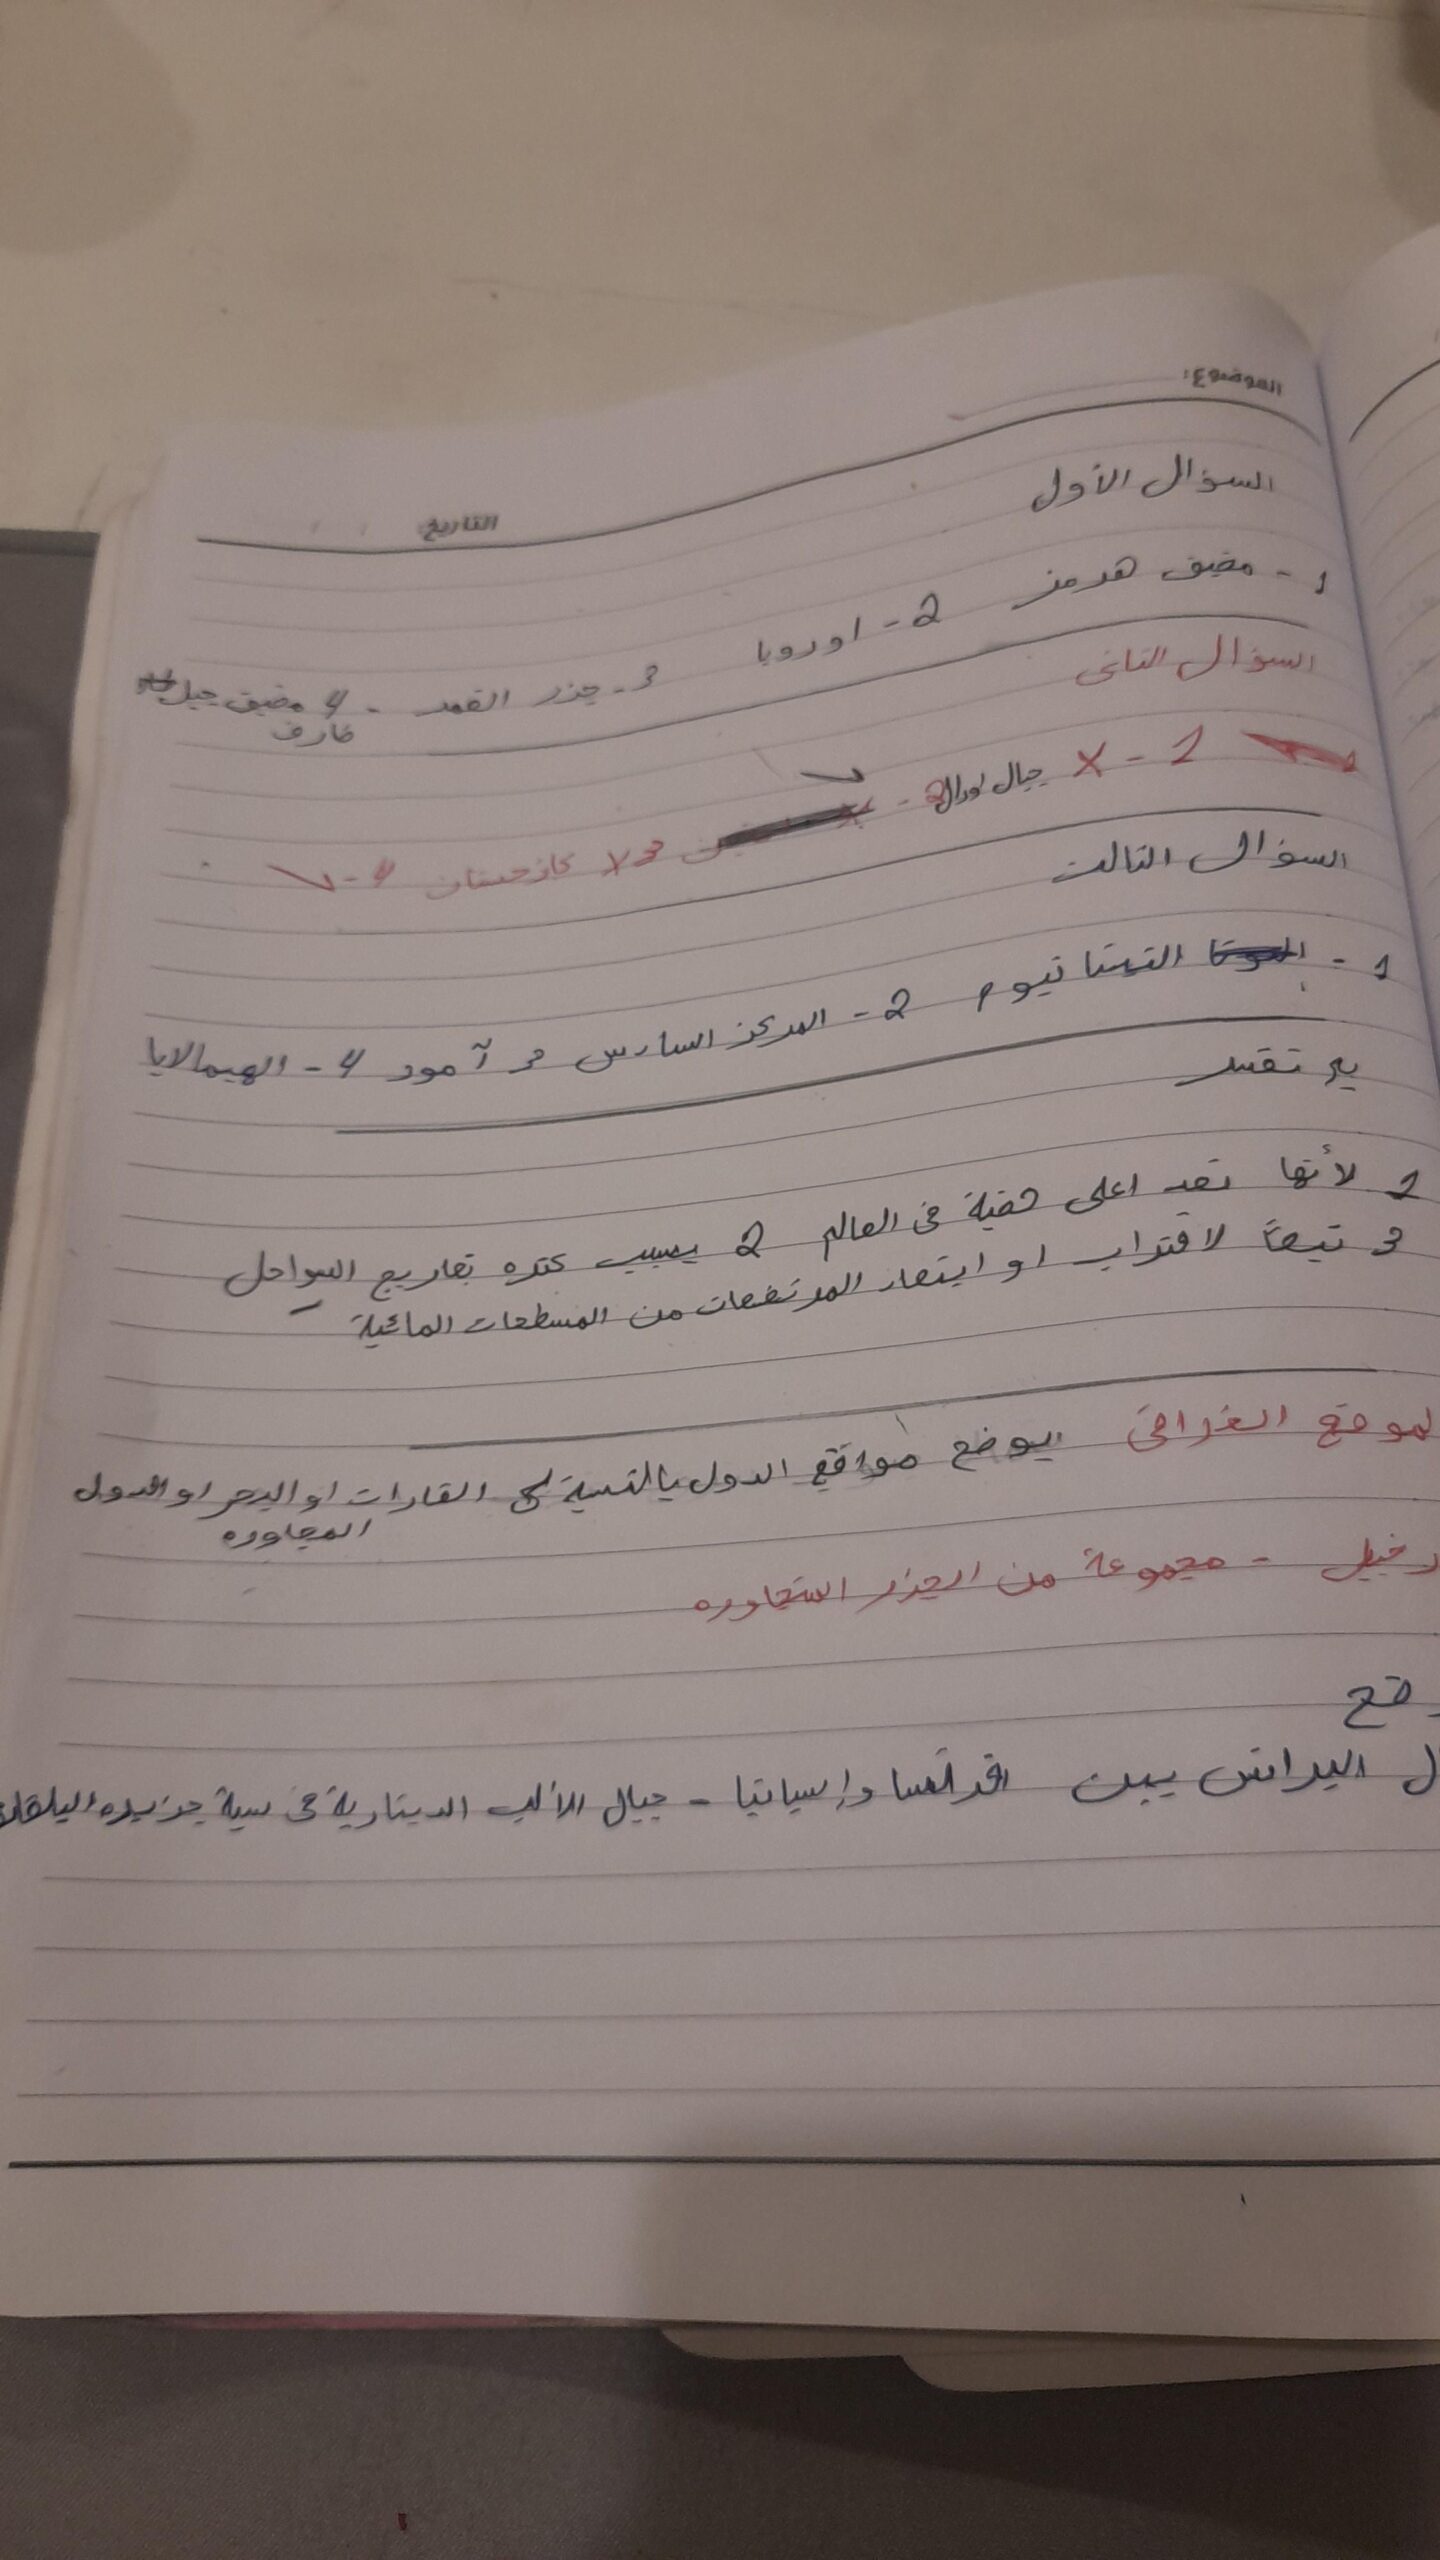 الموضوع:
التاريخ:
السؤال الأول
1 - مضيق هرمز 2 - اوروبا 3 - جزر القمر - 4 مضيق جبل
طارق
السؤال الثانى
1 - X جبال اورال 2 - ✓ 3 X كازخستان 4 - ✓
السؤال الثالث
1 - التيتانيوم 2 - المركز السادس 3 آمور 4 - الهيمالايا
بم تفسر
1 لأنها تعد اعلى هضبة فى العالم 2 بسبب كثره تعاريج السواحل
3 تبعاً لاقتراب او ابتعاد المرتفعات من المسطحات المائية
لموقع الغرافى يوضح مواقع الدول بالنسبة الى القارات او البحر او الدول
المجاوره
رخبيل - مجموعة من الجزر المتجاوره
ل البرانس بين افرنسا وإسبانيا - جبال الألب الدينارية فى سبة جزيره البلقان